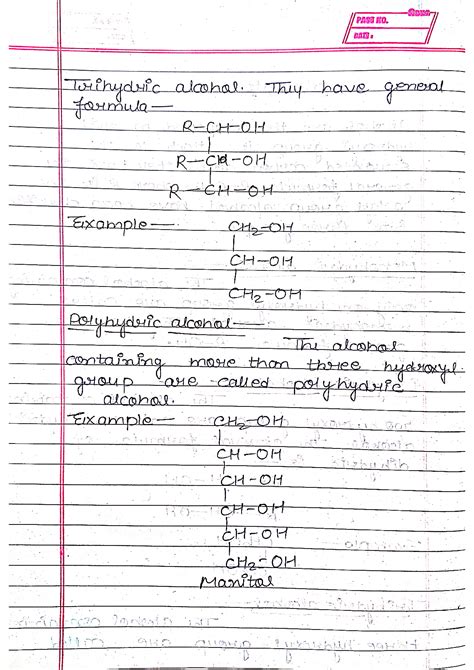 PAGE NO.
DATE:
Trihydric alcohol. They have general
formula—
R–CH–OH
R–CH–OH
R–CH–OH
Example—
CH2–OH
CH–OH
CH2–OH
Polyhydric alcohol—
The alcohol
containing more than three hydroxyl
group are called polyhydric
alcohol.
Example—
CH2–OH
CH–OH
CH–OH
CH–OH
CH–OH
CH2–OH
Manitol